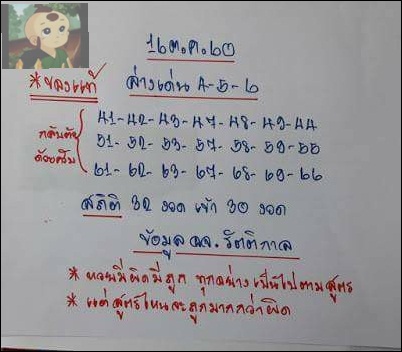 16 ต.ค. 60
*ของแท้ ล่างเด่น 4-5-6
กลับด้วยครับ
41-42-43-47-48-49-44
51-52-53-57-58-59-55
61-62-63-67-68-69-66
สถิติ 32 งวด เข้า 30 งวด
ข้อมูล อจ. รัตติกาล
* หวยมีผิดมีถูก ทุกอย่างเป็นไปตามสูตร
* แต่สูตรไหนจะถูกมากกว่าผิด